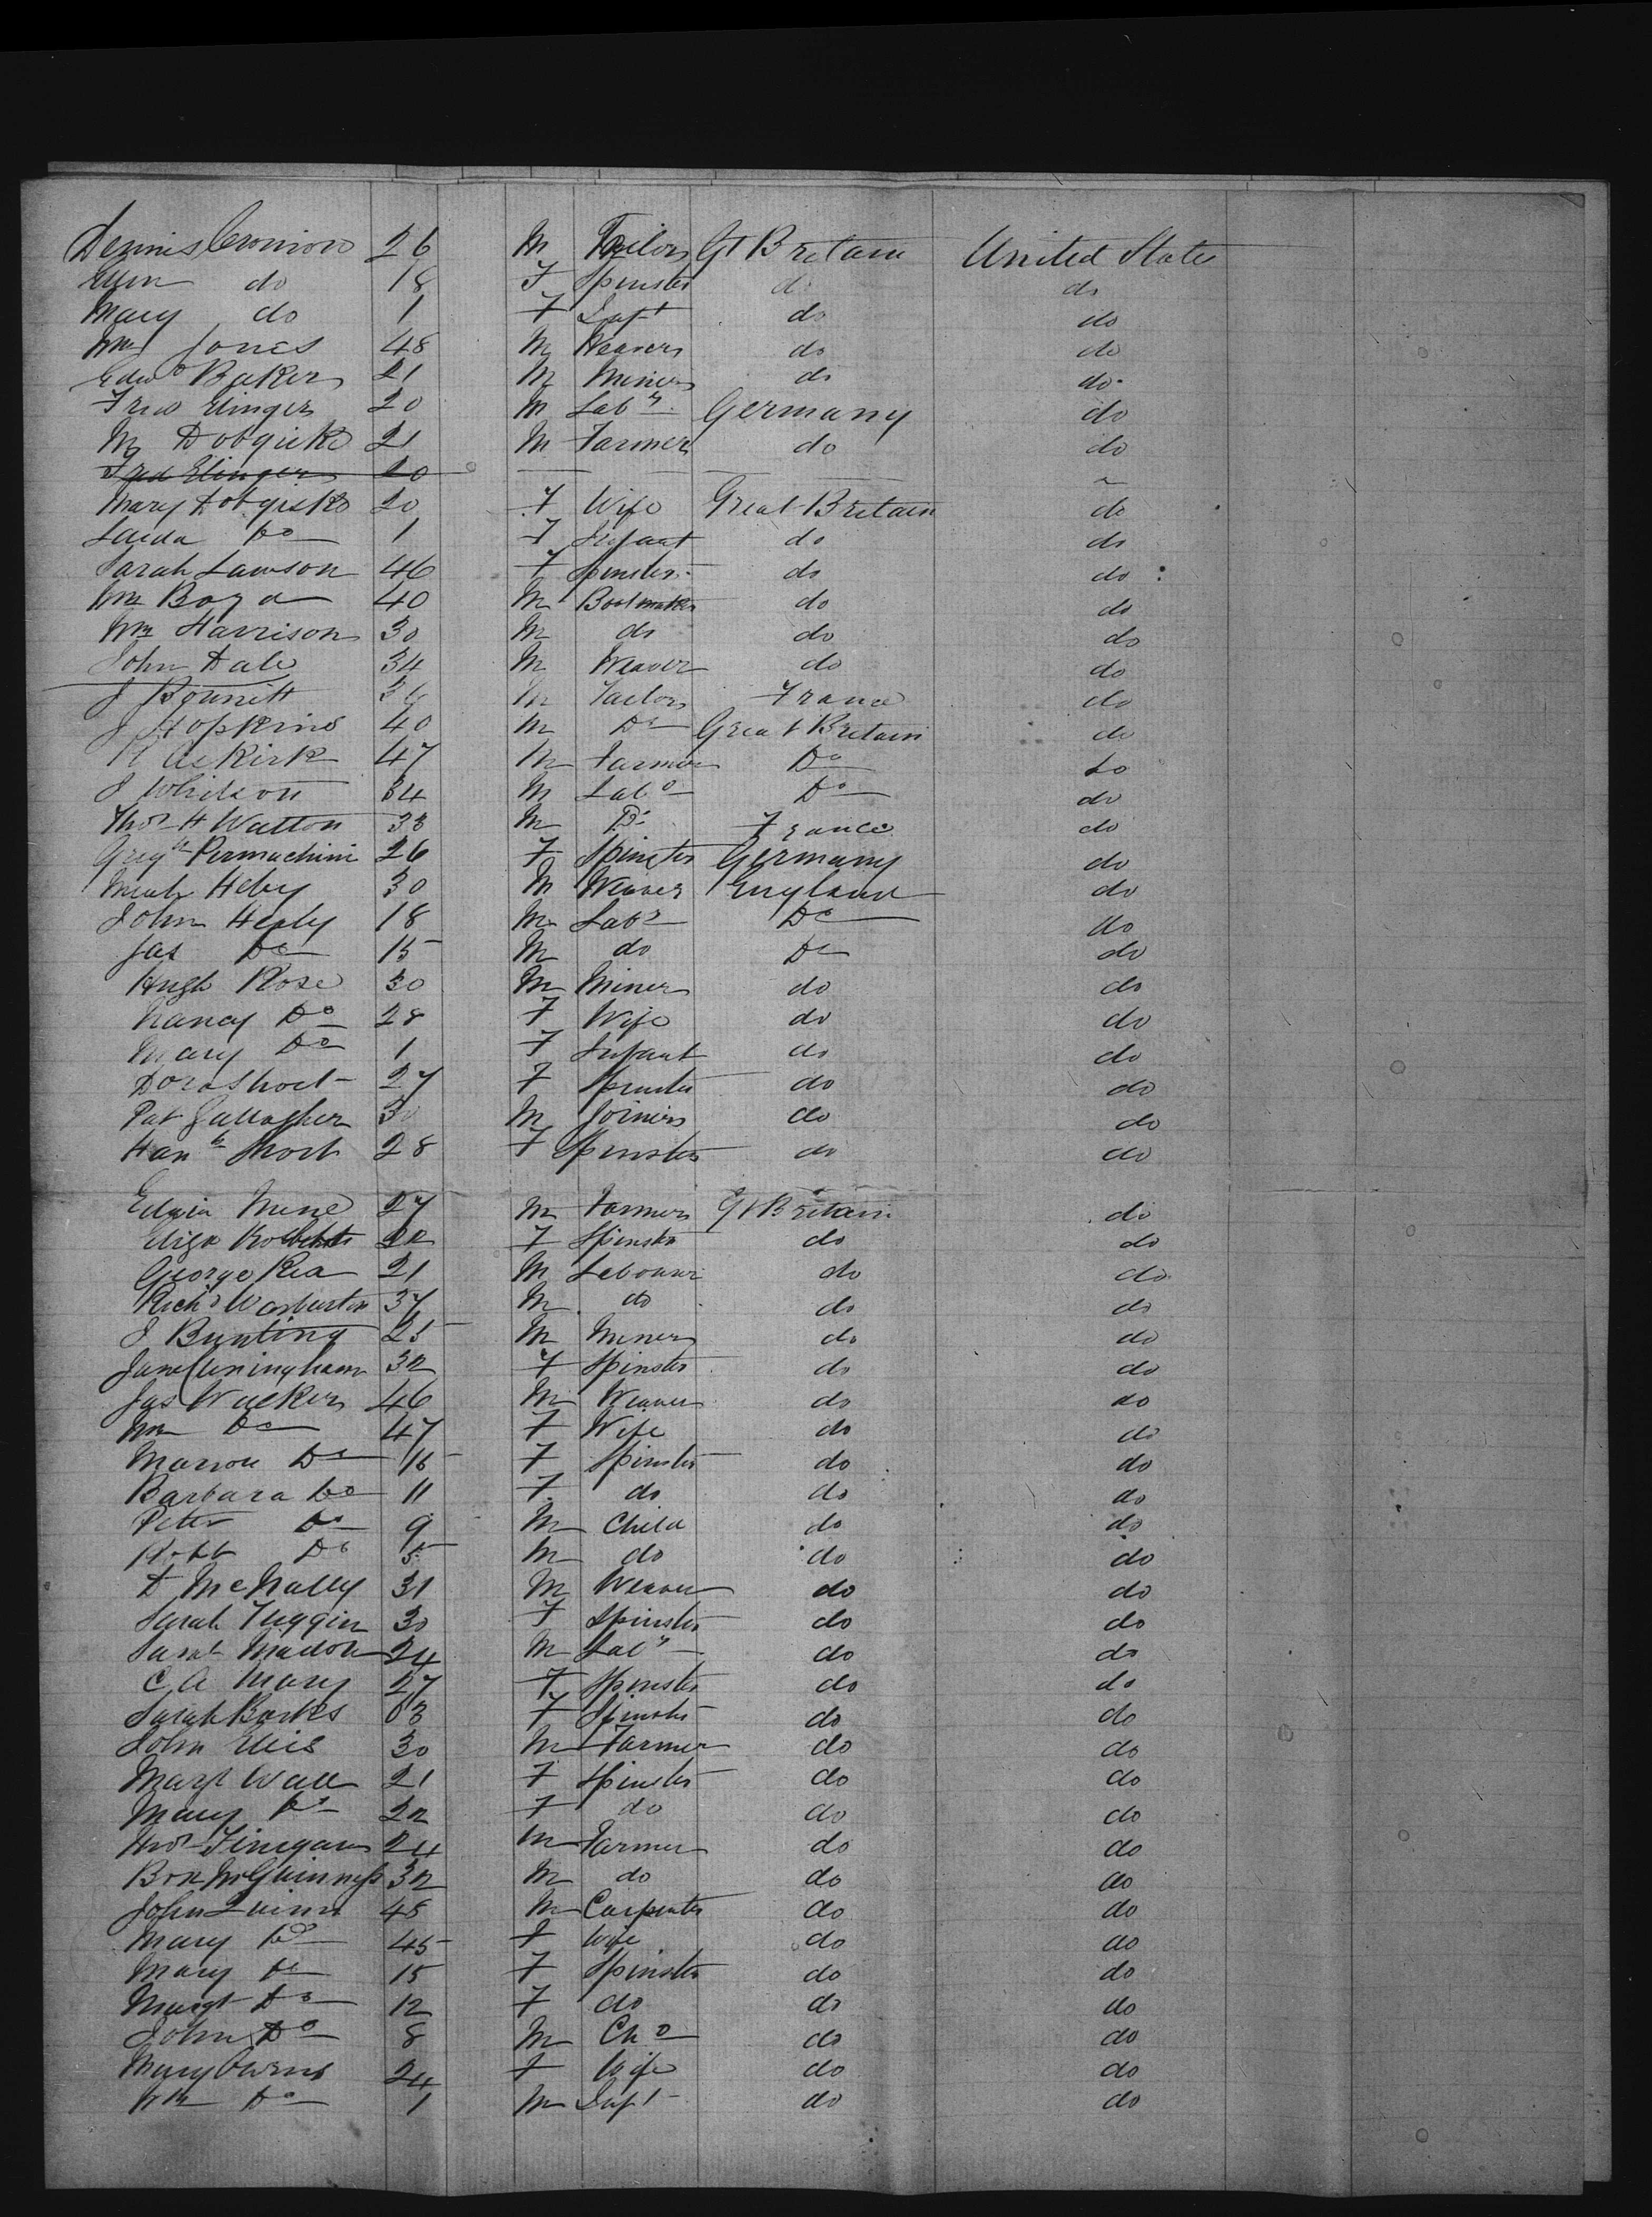 Dennis Cronion 26 M Tailor Gt Britain United States
Ellen do 18 F Spinster do do
Mary do 1 F Inft do do
Wm Jones 48 M Weaver do do
Edwd Baker 21 M Miner do do
Fred Elinger 20 M Labr Germany do
M Dobgicke 21 M Farmer do do
Fred Elinger 20
Mary Dobgicke 20 F Wife Great Britain do
Do 1 F Infant do do
Sarah Lawson 46 F Spinster do do
Wm Boyd 40 M Bootmaker do do
Wm Harrison 30 M do do do
John Dale 34 M Weaver do do
J 36 M Tailor France do
J Hopkins 40 M Do Great Britain do
47 M Farmer Do Do
J Whitson 34 M Labr Do do
Thos H Watton 33 M Do France do
26 F Spinster Germany do
30 M Weaver England do
John Healy 18 M Labr Do do
Jas Do 15 M do Do do
Hugh Rose 30 M Miner do do
Nancy Do 28 F Wife do do
Mary Do 1 F Infant do do
Dora Short 27 F Spinster do do
Pat Gallagher 30 M Joiner do do
Hanh Short 28 F Spinster do do
Edwin 27 M Farmer Gt Britain do
Eliza 22 F Spinster do do
George Rea 21 M Labourer do do
Richd Warburton 37 M do do do
J Bunting 25 M Miner do do
Jane Cuningham 32 F Spinster do do
Jas Walker 46 M Weaver do do
Do 47 F Wife do do
Marion Do 16 F Spinster do do
Barbara Do 11 F do do do
Peter Do 9 M Child do do
Robt Do 5 M do do do
D McNally 31 M Weaver do do
Sarah 30 F Spinster do do
Sarah 24 M Labr do do
C A Mary 27 F Spinster do do
Sarah Barks 63 F Spinster do do
John Ellis 30 M Farmer do do
Margt Wall 21 F Spinster do do
Mary Do 22 F do do do
Thos Finegan 24 M Farmer do do
McGuinness 32 M do do do
John Quinn 48 M Carpenter do do
Mary Do 45 F Wife do do
Mary Do 15 F Spinster do do
Margt Do 12 F do do do
John Do 8 M Chd do do
Mary Owens 24 F Wife do do
Wm Do 1 M Inft do do